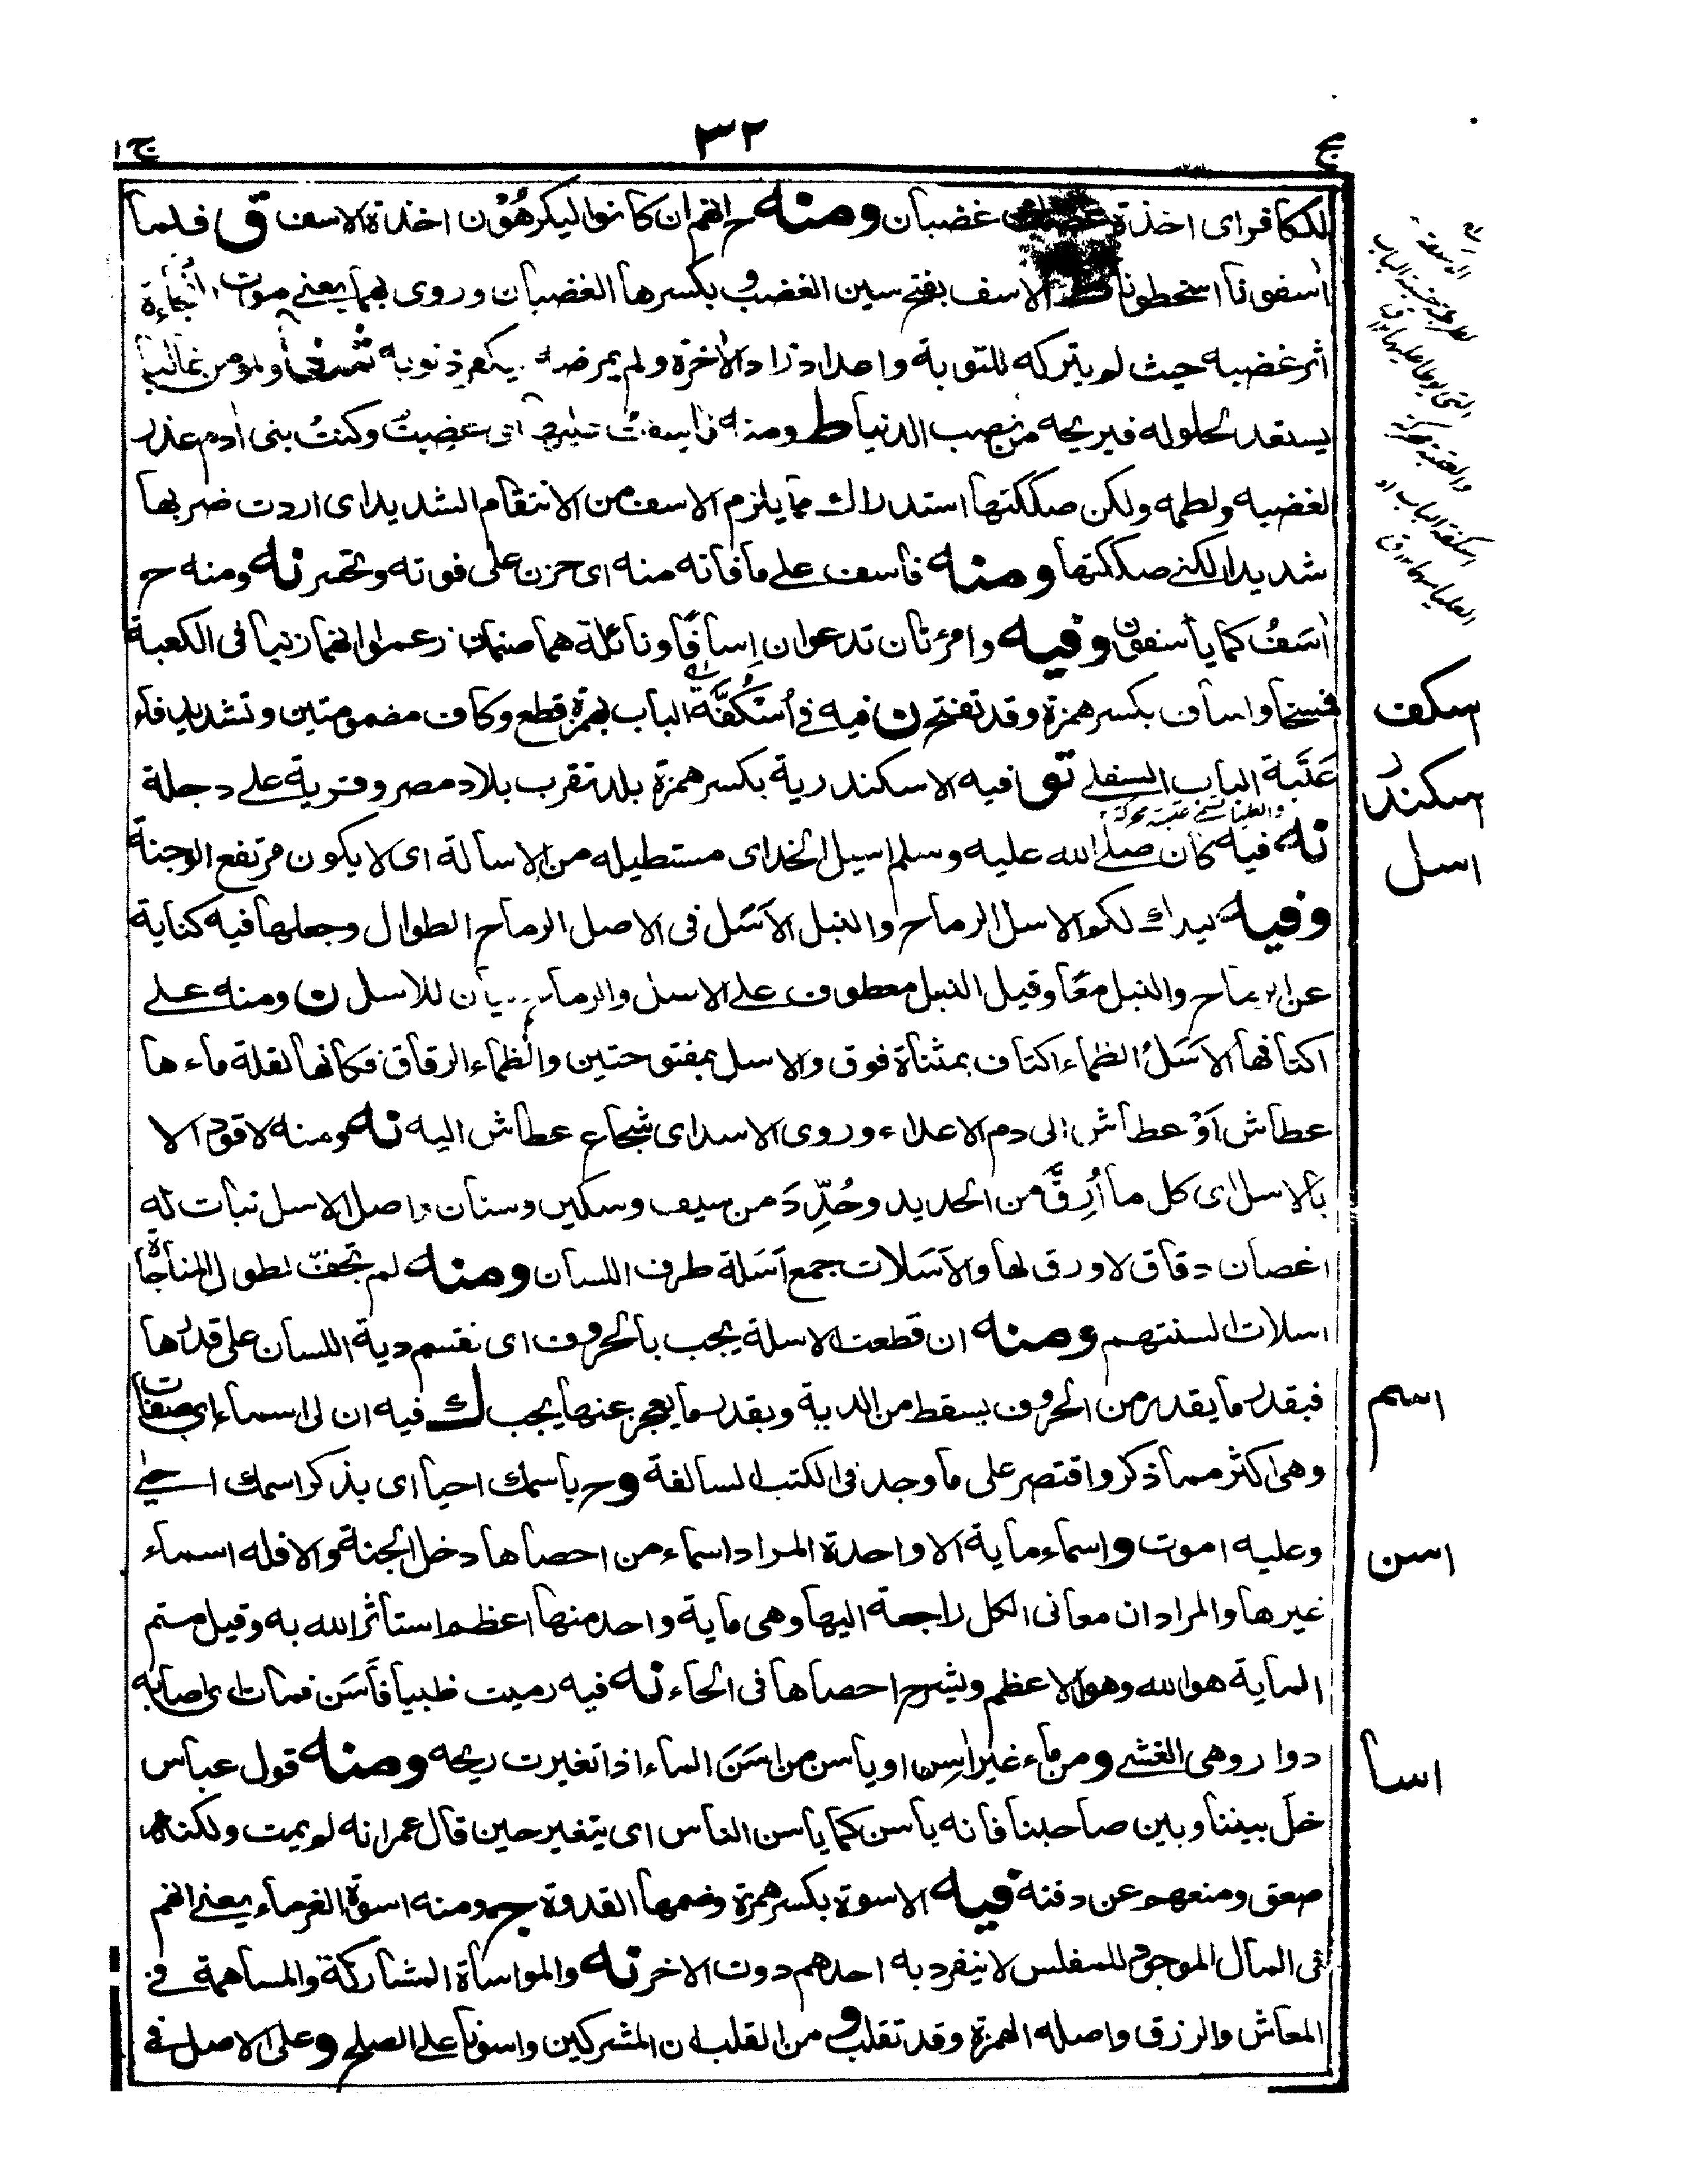 ج ٣٢ ج ١
للكافر اى اخذة غضبان ومنه ح النخعى ان كانوا ليكرهون اخذة الاسف ق فلما
اسفونا اسخطونا الاسف بفتح سين الغضب وبكسرها الغضبان وروى بهما يعنے موت الفجاءة
اثر غضبه حيث لم يتركه للتوبة واعداد زاد الاخرة ولم يمرضه ليكفر ذنوبه
يستعد لحلوله فيريحه من نصب الدنيا ط ومنه فاسفت عليها اى غضبت وكنت بنى ادم عذر
لغضبه ولطمه ولكن صككتها استدراك مما يلزم الاسف من الانتقام الشديد اى اردت ضربها
شديدا لكنے صككتها ومنه فاسف علے ما فاته منه اى حزن على فوته وتحسر نه ومنه ح
اٰسَفُ كما يأسفون وفيه وامرئتان تدعوان اِسافًا ونائلة هما صنمان زعموا انهما زنيا فى الكعبة
فمسخا واساف بكسر همزة وقد تفتح ن فيه فے اُسْكُفَّة الباب بهمزة قطع وكاف مضمومتين وتشديد فاء
عَتَبة الباب السفلے تو افيه الاسكندرية بكسر همزة بلد تقرب بلاد مصر وقرية علے دجلة
نه فيه كان صلے الله عليه وسلم اسيل الخد اى مستطيله من الاسالة اى لا يكون مرتفع الوجنة
وفيه ليدك لكم الاسل الرماح والنبل الاَسَل فى الاصل الرماح الطوال وجعلها فيه كناية
عن الرماح والنبل معًا وقيل النبل معطوف علے الاسل والرماح بيان للاسل ن ومنه علے
اكتافها الاَسَلُ الظماء اكتاف بمثناة فوق والاسل بمفتوحتين والظماء الرقاق فكانها لقلة ماءها
عطاش اَوْ عطاش الى دم الاعداء وروى الاسد اى شجاع عطاش اليه نه ومنه لا قود الا
بالاسل اى كل ما اُرِقَّ من الحديد وحُدِّدَ من سيف وسكين وسنان واصل الاسل نبات له
اغصان دقاق لا ورق لها والاَسَلات جمع اَسَلة طرف اللسان ومنه لم تجفّ لطول المناجاة
اسلات السنتهم ومنه ان قطعت الاسلة يجب بالحروف اى نقسم دية اللسان على قدرها
فبقدر ما يقدر من الحروف يسقط من الدية وبقدر ما يعجز عنها يجب ك فيه ان لى اسماء اى صفات
وهى اكثر مما ذكر واقتصر على ما وجد فى الكتب السالفة وح باسمك احيا اى بذكر اسمك احيے
وعليه اموت واسماء ماية الا واحدة المراد اسماء من احصاها دخل الجنة والا فله اسماء
غيرها والمراد ان معانى الكل راجعة اليها وهى ماية واحد منها اعظم استأثر الله به وقيل متمم
الماية هو الله وهو الاعظم وشرح احصاها فى الحاء نه فيه رميت ظبيا فأَسَن فمات اى اصابه
دوار وهى الغشے ومن ماء غير اسن او ياسن من اسَنَ الماء اذا تغيرت ريحه ومنه قول عباس
خل بيننا وبين صاحبنا فانه ياسن كما ياسن الناس اى يتغير حين قال عمر انه لم يمت ولكنه
صعق ومنعهم عن دفنه فيه الاسوة بكسر همزة وضمها القدوة ج ومنه اسوة الغرماء يعنے انهم
فى المال الموجود للمفلس لا ينفرد به احدهم دون الاخر نه والمواساة المشاركة والمساهمة فے
المعاش والرزق واصله الهمزة وقد تقلب و من القلب ان المشركين واسونا علے الصلح وعلى الاصل فے
اسكف
اسكندر
اسل
والعليا تسمى عتبة محركة
اسم
اسن
اسا